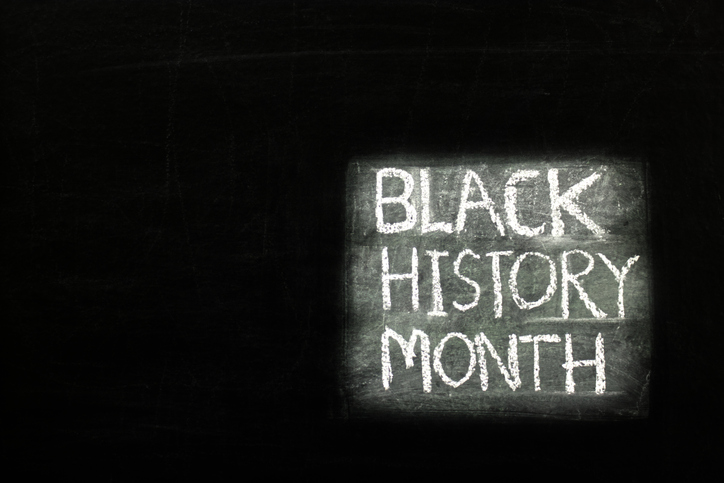 BLACK
HISTORY
MONTH